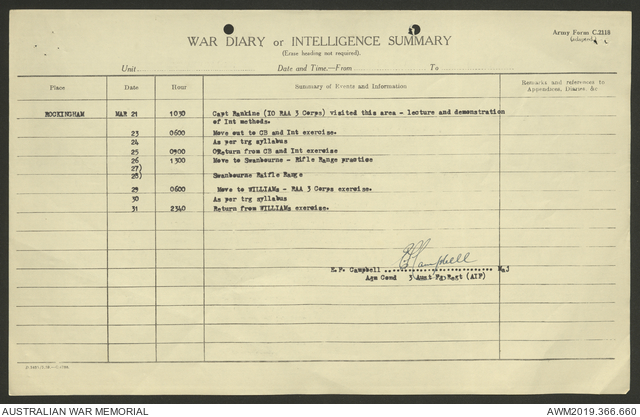 Army Form C.2118
(adapted)
WAR DIARY or INTELLIGENCE SUMMARY
(Erase heading not required).
Unit Date and Time.—From To
Place Date Hour Summary of Events and Information Remarks and references to Appendices, Diaries, &c
ROCKINGHAM MAR 21 1030 Capt Rankine (IO RAA 3 Corps) visited this area - lecture and demonstration
of Int methods.
23 0600 Move out to CB and Int exercise.
24 As per trg syllabus
25 0900 Return from CB and Int exercise
26 1300 Move to Swanbourne - Rifle Range practice
27)
28) Swanbourne Raifle Range
29 0600 Move to WILLIAMs - RAA 3 Corps exercise.
30 As per trg syllabus
31 2340 Return from WILLIAMs exercise.
E Campbell
E.F. Campbell Maj
Adm Comd 3 Aust Fd Regt (AIF)
AUSTRALIAN WAR MEMORIAL AWM2019.366.660